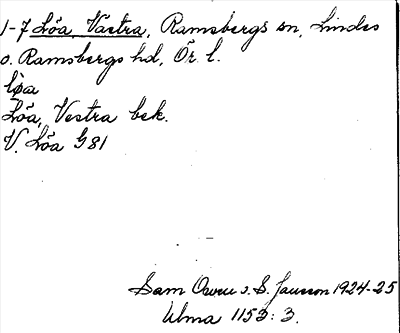 1-7 Löa, Västra, Ramsbergs sn, Lindes
o. Ramsbergs hd, Ör. l.
lȯ̀a
Löa, Vestra bek.
V. Löa G81
Sam Owen o. S. Jansson 1924-25
Ulma 1153:3.